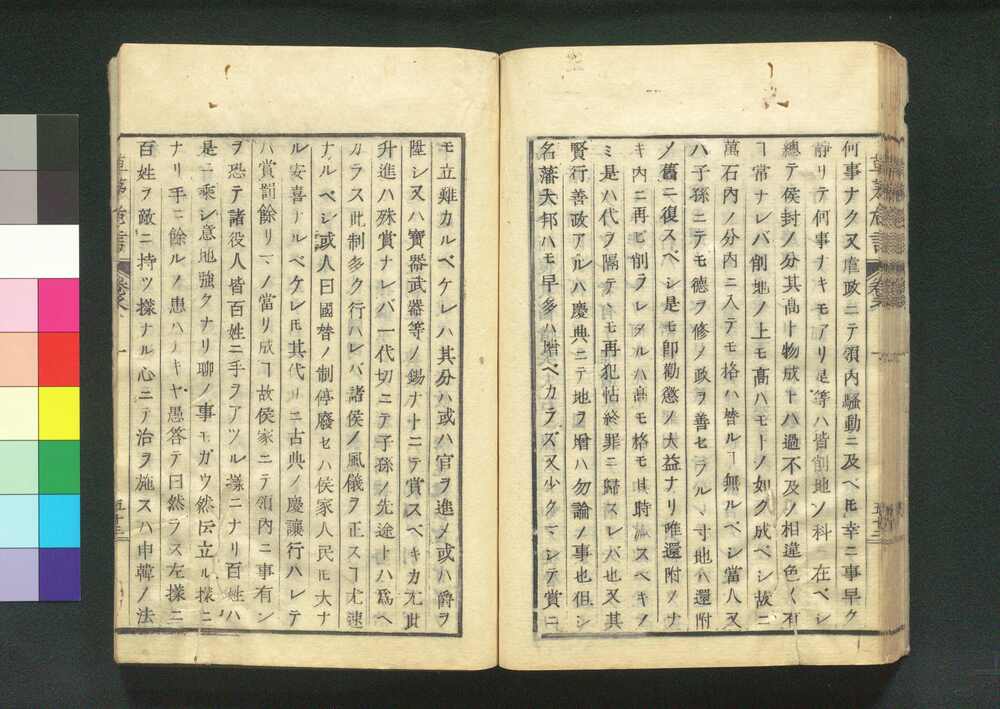 何事ナク又虐政ニテ領内騒動ニ及ベヒ幸ニ事早ク
靜リテ何事ナキモアリ是等ハ皆削地ノ科ニ在ベシ
總テ侯封ノ分其髙ト物成トハ過不及ノ相違色〱有
ヿ常ナレバ削地ノ上モ髙ハモトノ如ク成ベシ故ニ
萬石内ノ分内ニ入テモ格ハ皆ルヿ無ルベシ當人又
ハ子孫ニテモ德ヲ修メ政ヲ善セラルレハ寸地ハ還附
ノ舊ニ復スベシ是モ卽勸懲ノ大益ナリ唯還附ノナ
キ内ニ再ビ削ラレタルハ髙モ格モ其時減スベキノ
ミ是ハ代ヲ隔テヽモ再犯怙終罪ニ歸スレバ也又其
賢行善政アルハ慶典ニテ地ヲ增ハ勿論ノ事也但シ
名藩大邦ハモ早多ハ增ベカラズ又少クマシテ賞ニ
草茅危言
モ立難カルベケレハ其分ハ或ハ官ヲ進メ或ハ爵ヲ
陞シ又ハ寶器武器等ノ錫ナトニテ賞スベキカ尤此
升進ハ殊賞ナレバ一代切ニテ子孫ノ先途トハ爲ヘ
カラス此制多ク行ハレバ諸侯ノ風儀ヲ正スヿ尤速
ナルベシ或人曰國替ノ制停廢セハ侯家人民𪜈大ナ
ル安喜ナルベケレ𪜈其代リニ古典ノ慶讓行ハレテ
ハ賞罰餘リマノ當リ成ヿ故侯家ニテ領内ニ事有ン
ヲ恐テ諸役人皆百姓ニ手ヲアツル樣ニナリ百姓ハ
是ニ乘シ意地強クナリ聊ノ事モガウ然伝立ル樣ニ
ナリ手ニ餘ルノ患ハナキヤ愚答テ曰然ラス左樣ニ
百姓ヲ敵ニ持ツ樣ナル心ニテ治ヲ施スハ申韓ノ法
草茅危言
五十三